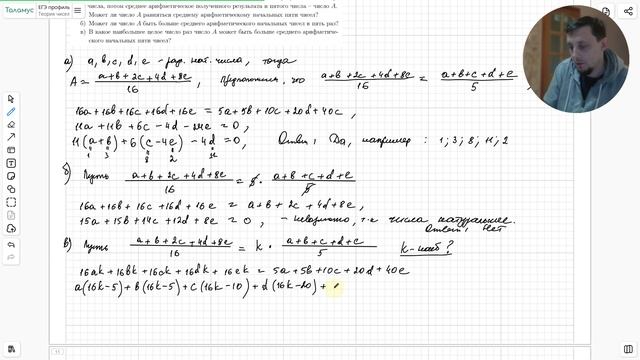 Таламус
ЕГЭ профиль
Теория чисел
числа, потом среднее арифметическое полученного результата и пятого числа – число A.
Может ли число A равняться среднему арифметическому начальных пяти чисел?
б) Может ли число A быть больше среднего арифметического начальных чисел в пять раз?
в) В какое наибольшее целое число раз число A может быть больше среднего арифметического начальных пяти чисел?
а) a, b, c, d, e – нат. числа, тогда
A = (a+b+2c+4d+8e)/16, предположим, что (a+b+2c+4d+8e)/16 = (a+b+c+d+e)/5
16a+16b+16c+16d+16e = 5a+5b+10c+20d+40e,
11a+11b+6c-4d-24e = 0,
11(a+b)+6(c-4e)-4d = 0, Ответ: Да, например: 1; 3; 8; 11; 2
1 3 8 2 11
б) Пусть (a+b+2c+4d+8e)/16 = 5 · (a+b+c+d+e)/5
16a+16b+16c+16d+16e = a+b+2c+4d+8e,
15a+15b+14c+12d+8e = 0, – невозможно, т.к числа натуральные.
Ответ: Нет
в) Пусть (a+b+2c+4d+8e)/16 = k · (a+b+c+d+e)/5 k-наиб?
16ak+16bk+16ck+16dk+16ek = 5a+5b+10c+20d+40e
a(16k-5)+b(16k-5)+c(16k-10)+d(16k-20)+